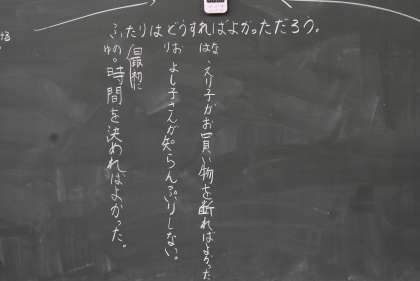 ふたりはどうすればよかっただろう。
はな えり子がお買い物を断ればよかった
りお よし子さんが知らんぷりしない。
ふの ゆ。 最初に
時間を決めればよかった。